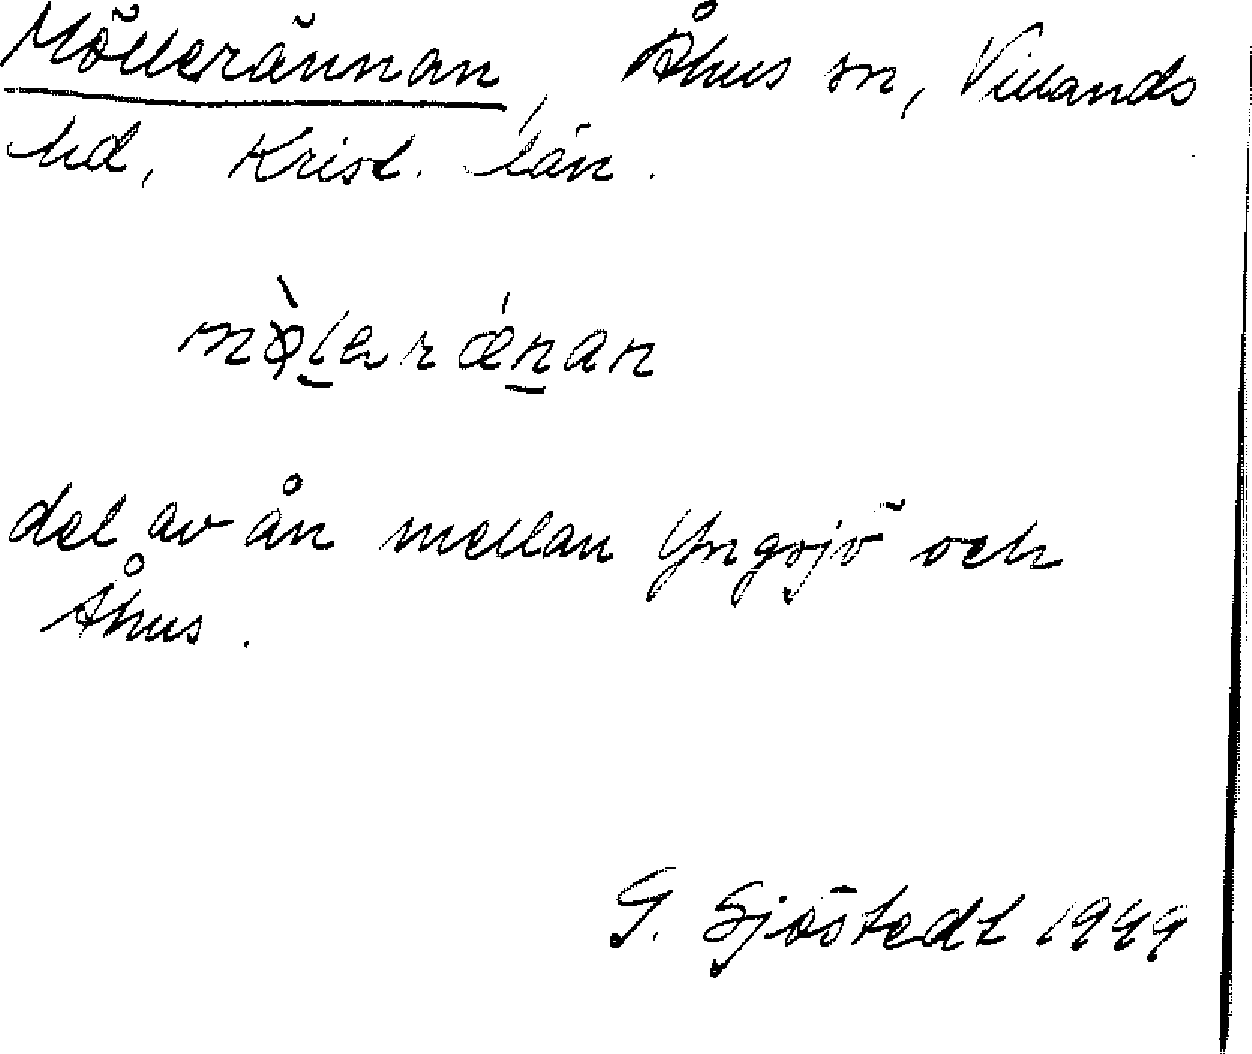 Möllerännan, Åhus sn, Villands
hd, Krist. län.
mø̀lerǽnan
del av ån mellan Yngsjö och
Åhus.
G. Sjöstedt 1949